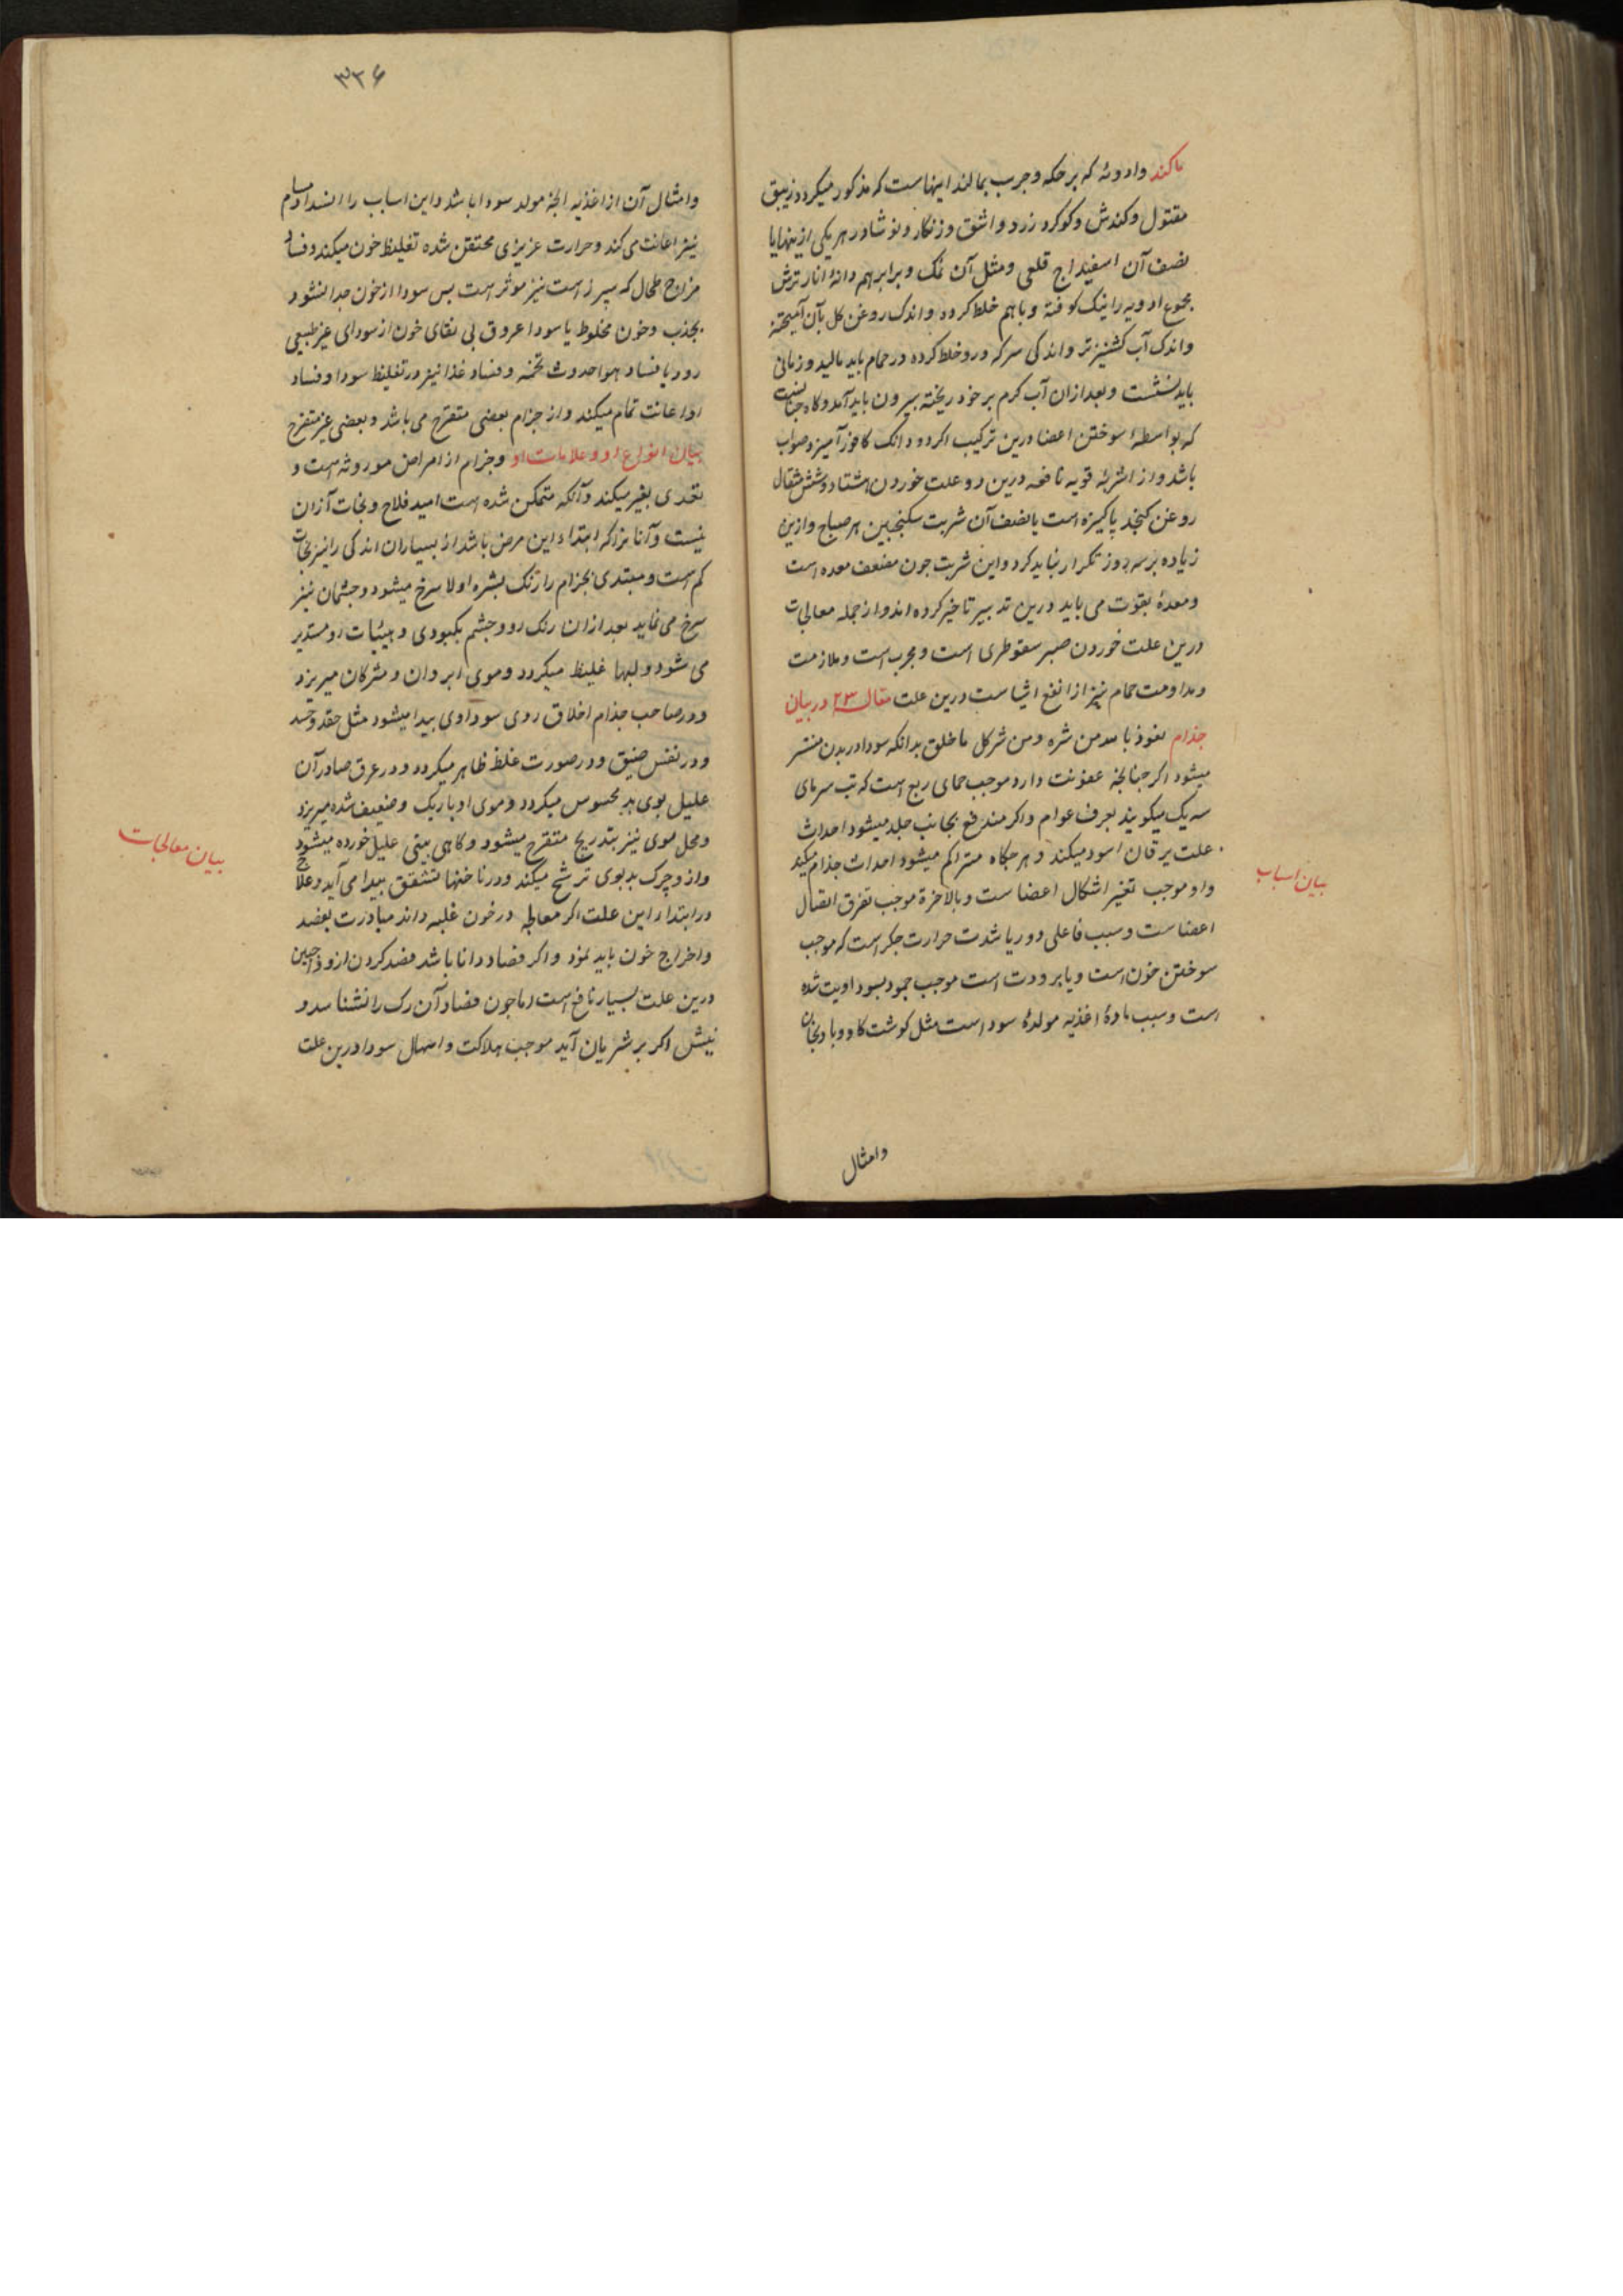 ماکند وادویه که بر حکه وجرب بمالند اینهاست که مذکور میکردد زیبق
مقتول وکندش وکوکرد زرد واشق وزنکار ونوشادر هر یکی ازینها یا
نصف آن اسفیداج قلعی ومثل آن نمک وبرابر هم دانهٔ انار ترش
مجموع ادویه را نیک کوفته وباهم خلط کردد واندک روغن کل بآن آمیخته
واندک آب کشنیز تر واندکی سرکه درو خلط کرده در حمام باید مالید وزمانی
باید نشست وبعد ازان آب کرم بر خود ریخته بیرون باید آمد وکاه
که بواسطهٔ سوختن اعضا درین ترکیب اکر دو دانک کافور آمیزد صواب
باشد واز اشربهٔ قویه نافعه درین دو علت خوردن هشتاد وشش مثقال
روغن کنجد پاکیزه است بانصف آن شربت سکنجبین هر صباح وازین
زیاده بر سه روز تکرار نباید کرد واین شربت جون مضعف معده است
ومعدهٔ بقوت می باید درین تدبیر تاخیر کرده اند واز جمله معالجات
درین علت خوردن صبر سقوطری است ومجرب است وملازمت
ومداومت حمام نیز از انفع اشیاست درین علت مقاله ۲۳ در بیان
جذام نعوذ بالله من شره ومن شر کل ما خلق بدانکه سودا در بدن منتشر
میشود اکر جنانجه عفونت دارد موجب حمای ربع است که تب سرمای
سه یک میکویند بعرف عوام واکر مندفع بجانب جلد میشود احداث
علت یرقان اسود میکند وهر جکاه متراکم میشود احداث جذام میکند
واو موجب تغیر اشکال اعضاست وبالاخرة موجب تفرق اتصال
اعضاست وسبب فاعلی دورا یا شدت حرارت جکر است که موجب
سوختن خون است ویا برودت است موجب جمود بسوداویت شده
است وسبب مادهٔ اغذیه مولدهٔ سودا است مثل کوشت کاو وبادنجان
بیان اسباب
وامثال
۳۲۶
وامثال آن از اغذیه الجهٔ مولد سودا باشد واین اسباب را انسداد مسام
نیز اعانت می کند وحرارت غریزی محتقن شده تغلیظ خون میکند وفساد
مزاج طحال که سپرز است نیز موثر است بس سودا از خون جدا نشود
بجذب وخون مخلوط با سودا عروق بی نقای خون از سودای غیر طبیعی
رود یا فساد هوا حدوث تخمه وفساد غذا نیز در تغلیظ سودا وفساد
او اعانت تمام میکند واز جزام بعضی متقرح می باشد وبعضی غیر متقرح
بیان انواع او وعلامات او وجزام از امراض موروثه است و
تعدی بغیر میکند وآنکه متمکن شده است امید فلاح ونجات آزان
نیست وآنانرا که ابتداء این مرض باشد از بسیاران اندکی را نیز نجات
کم است ومبتدی بجزام را رنک بشره اولا سرخ میشود وجشمان نیز
سرخ می نماید بعد ازان رنک رو وجشم بکبودی وهیئات رو مستدیر
می شود ولبها غلیظ میکردد وموی ابروان ومژکان میریزد
ودر صاحب جذام اخلاق ردی سوداوی بیدا میشود مثل حقد وحسد
ودر نفس ضیق ودر صورت غلظ ظاهر میکردد ودر عرق صادر آن
علیل بوی بد محسوس میکردد وموی او باریک وضعیف شده میریزد
ومحل موی نیز بتدریج متقرح میشود وکاهی بینی علیل خورده میشود
وازو چرک بدبوی ترشح میکند ودر ناخنها تشقق بیدا می آید وعلاج
در ابتداء این علت اکر معالجه در خون غلبه داند مبادرت بفصد
واخراج خون باید نمود واکر فصاد دانا باشد فصد کردن از ودجین
درین علت بسیار نافع است اما جون فصاد آن رک را نشناسد و
نیشل اکر بر شریان آید موجب هلاکت واسهال سودا درین علت
بیان معالجات